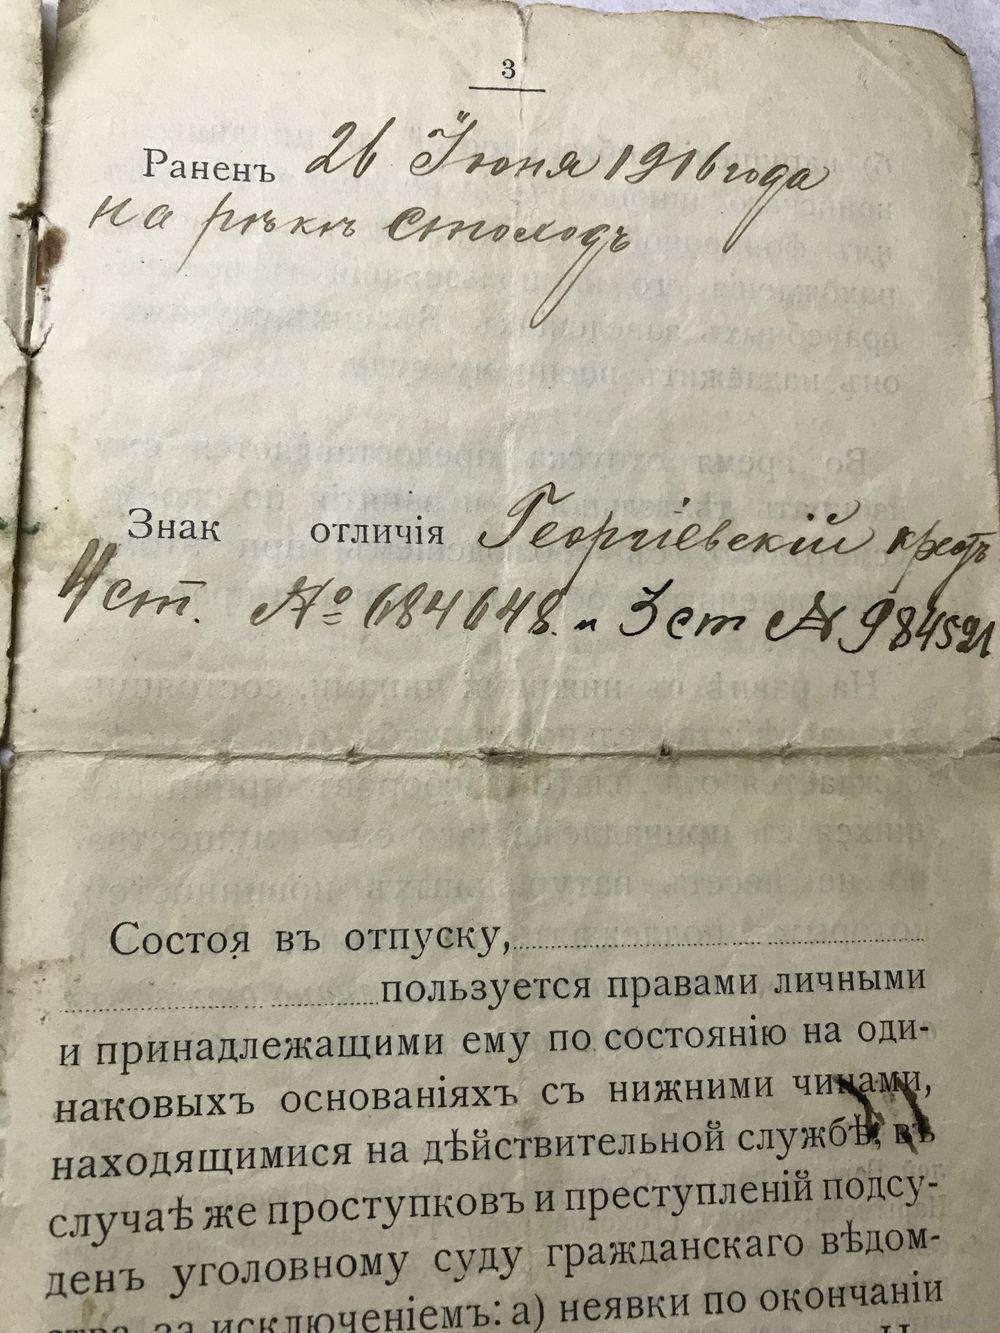 3
Раненъ 26 Іюня 1916 года
на рѣкѣ Стоходъ
Знак отличія Георгіевскій крестъ
4 ст. № 684648. и 3 ст № 984521
Состоя въ отпуску,
пользуется правами личными
и принадлежащими ему по состоянію на оди-
наковыхъ основаніяхъ съ нижними чинами,
находящимися на дѣйствительной службѣ; въ
случаѣ же проступковъ и преступленій подсу-
денъ уголовному суду гражданскаго вѣдом-
ства, за исключеніемъ: а) неявки по окончаніи